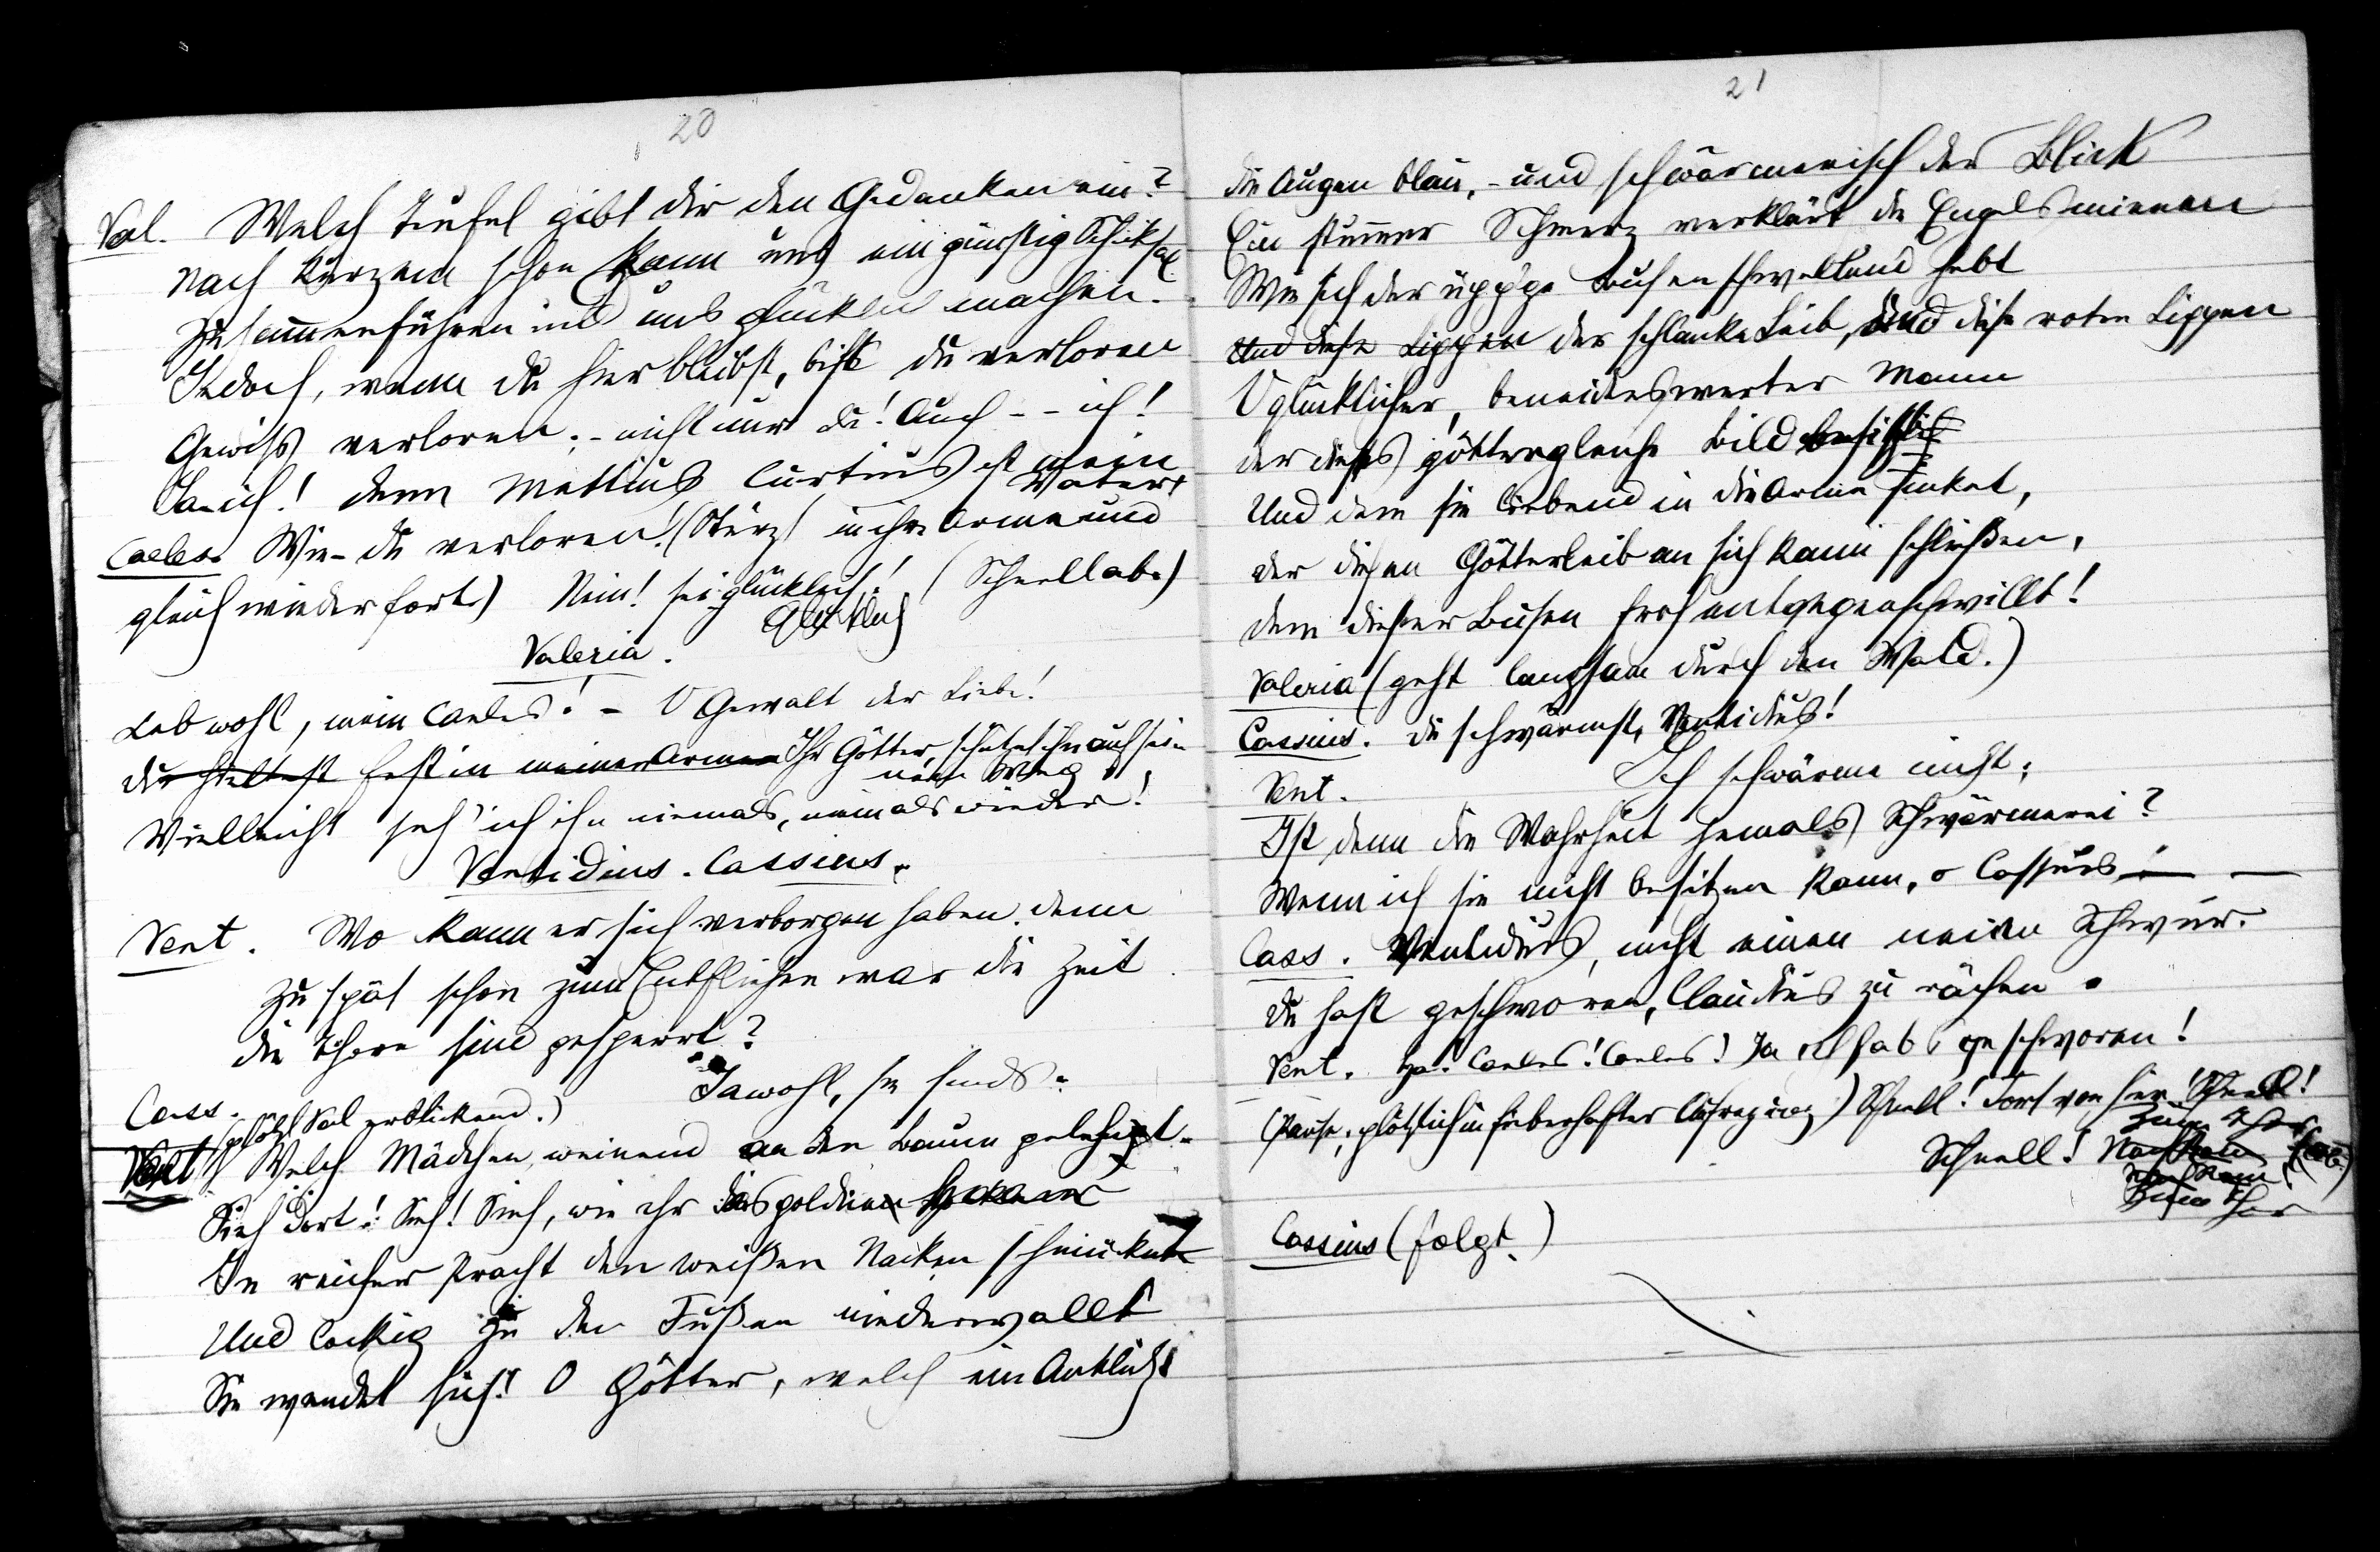 20
Val. Welch Teufel gibt dir den Gedanken ein?
Nach Kurzem schon kann uns ein günstig Schiksal
Zusammenführen und uns glücklich machen.
Jedoch, wenn du hier bleibst, bist du verloren
Gewiss verloren; - nicht nur du! Auch - - ich!
Ja - ich! denn Mettius Curtius ist mein
Vater.
Caeles. Wie - du verloren! (Stürzt in ihre Arme und
gleich wieder fort.) Nein! sei glücklich! (Schnell ab.)
Valeria.
Leb wohl, mein Caeles! - O Gewalt der Liebe!
Du hieltest fest in meinen Armen Ihr Götter, schützet ihn auf sei-
nem Weg!
Vielleicht seh' ich ihn niemals, niemals wieder!
Ventidius. Cassius.
Vent. Wo kann er sich verborgen haben, denn
Zu spät schon zum Entfliehen war die Zeit
Die Thore sind gesperrt?
Cass. Jawohl, sie sinds.
Vent. (plötzl Val erblickend.)
Welch Mädchen, weinend an den Baum gelehnt.
Sieh dort! Sieh! Sieh, wie ihr das goldne
In reicher Pracht den weißen Nacken schmückt
Und lockig zu den Füßen niederwallt
Sie wendet sich! O Götter, welch ein Antlitz!
21
Die Augen blau, - und schwärmerisch der Blick
Ein stummer Schmerz verklärt die Engelsmienen
Wie sich der üpp'ge Busen schwellend hebt
Und diese Lippen der schlanke Leib, und diese roten Lippen
O glücklicher, beneidenswerter Mann
Der dieses göttergleiche Bild besitzt
Und dem sie liebend in die Arme sinket,
Der diesen Götterleib an sich kann schließen,
Dem dieser Busen froh entgegenschwillt!
Valeria (geht langsam durch den Wald.)
Cassius. Du schwärmst, Ventidius!
Vent. Ich schwärme nicht;
Ist denn die Wahrheit jemals Schwärmerei?
Wenn ich sie nicht besitzen kann, o Cassius! -
Cass. Ventidius, nicht einen neuen Schwur.
Du hast geschworen, Claudius zu rächen.
Vent. Ha! Caeles! Caeles! Ja ich hab' geschworen!
(Pause; plötzlich in fieberhafter Aufregung) Schnell! Fort von hier! Schnell!
Zum Thor
Schnell! (ab.)
Zum Thor
Cassius (folgt.)